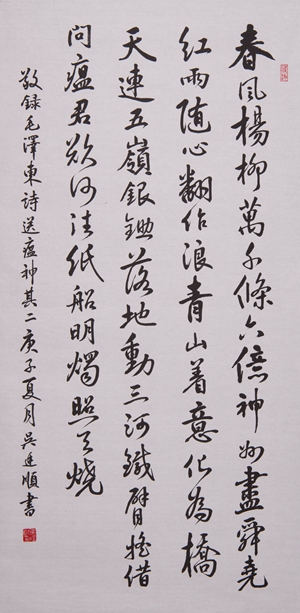 春風楊柳萬千條六億神州盡舜堯
紅雨随心翻作浪青山着意化為橋
天連五嶺銀鋤落地動三河鐵臂搖借
問瘟君欲何往紙船明燭照天燒
敬録毛澤東詩送瘟神其二庚子夏月吴廷順書